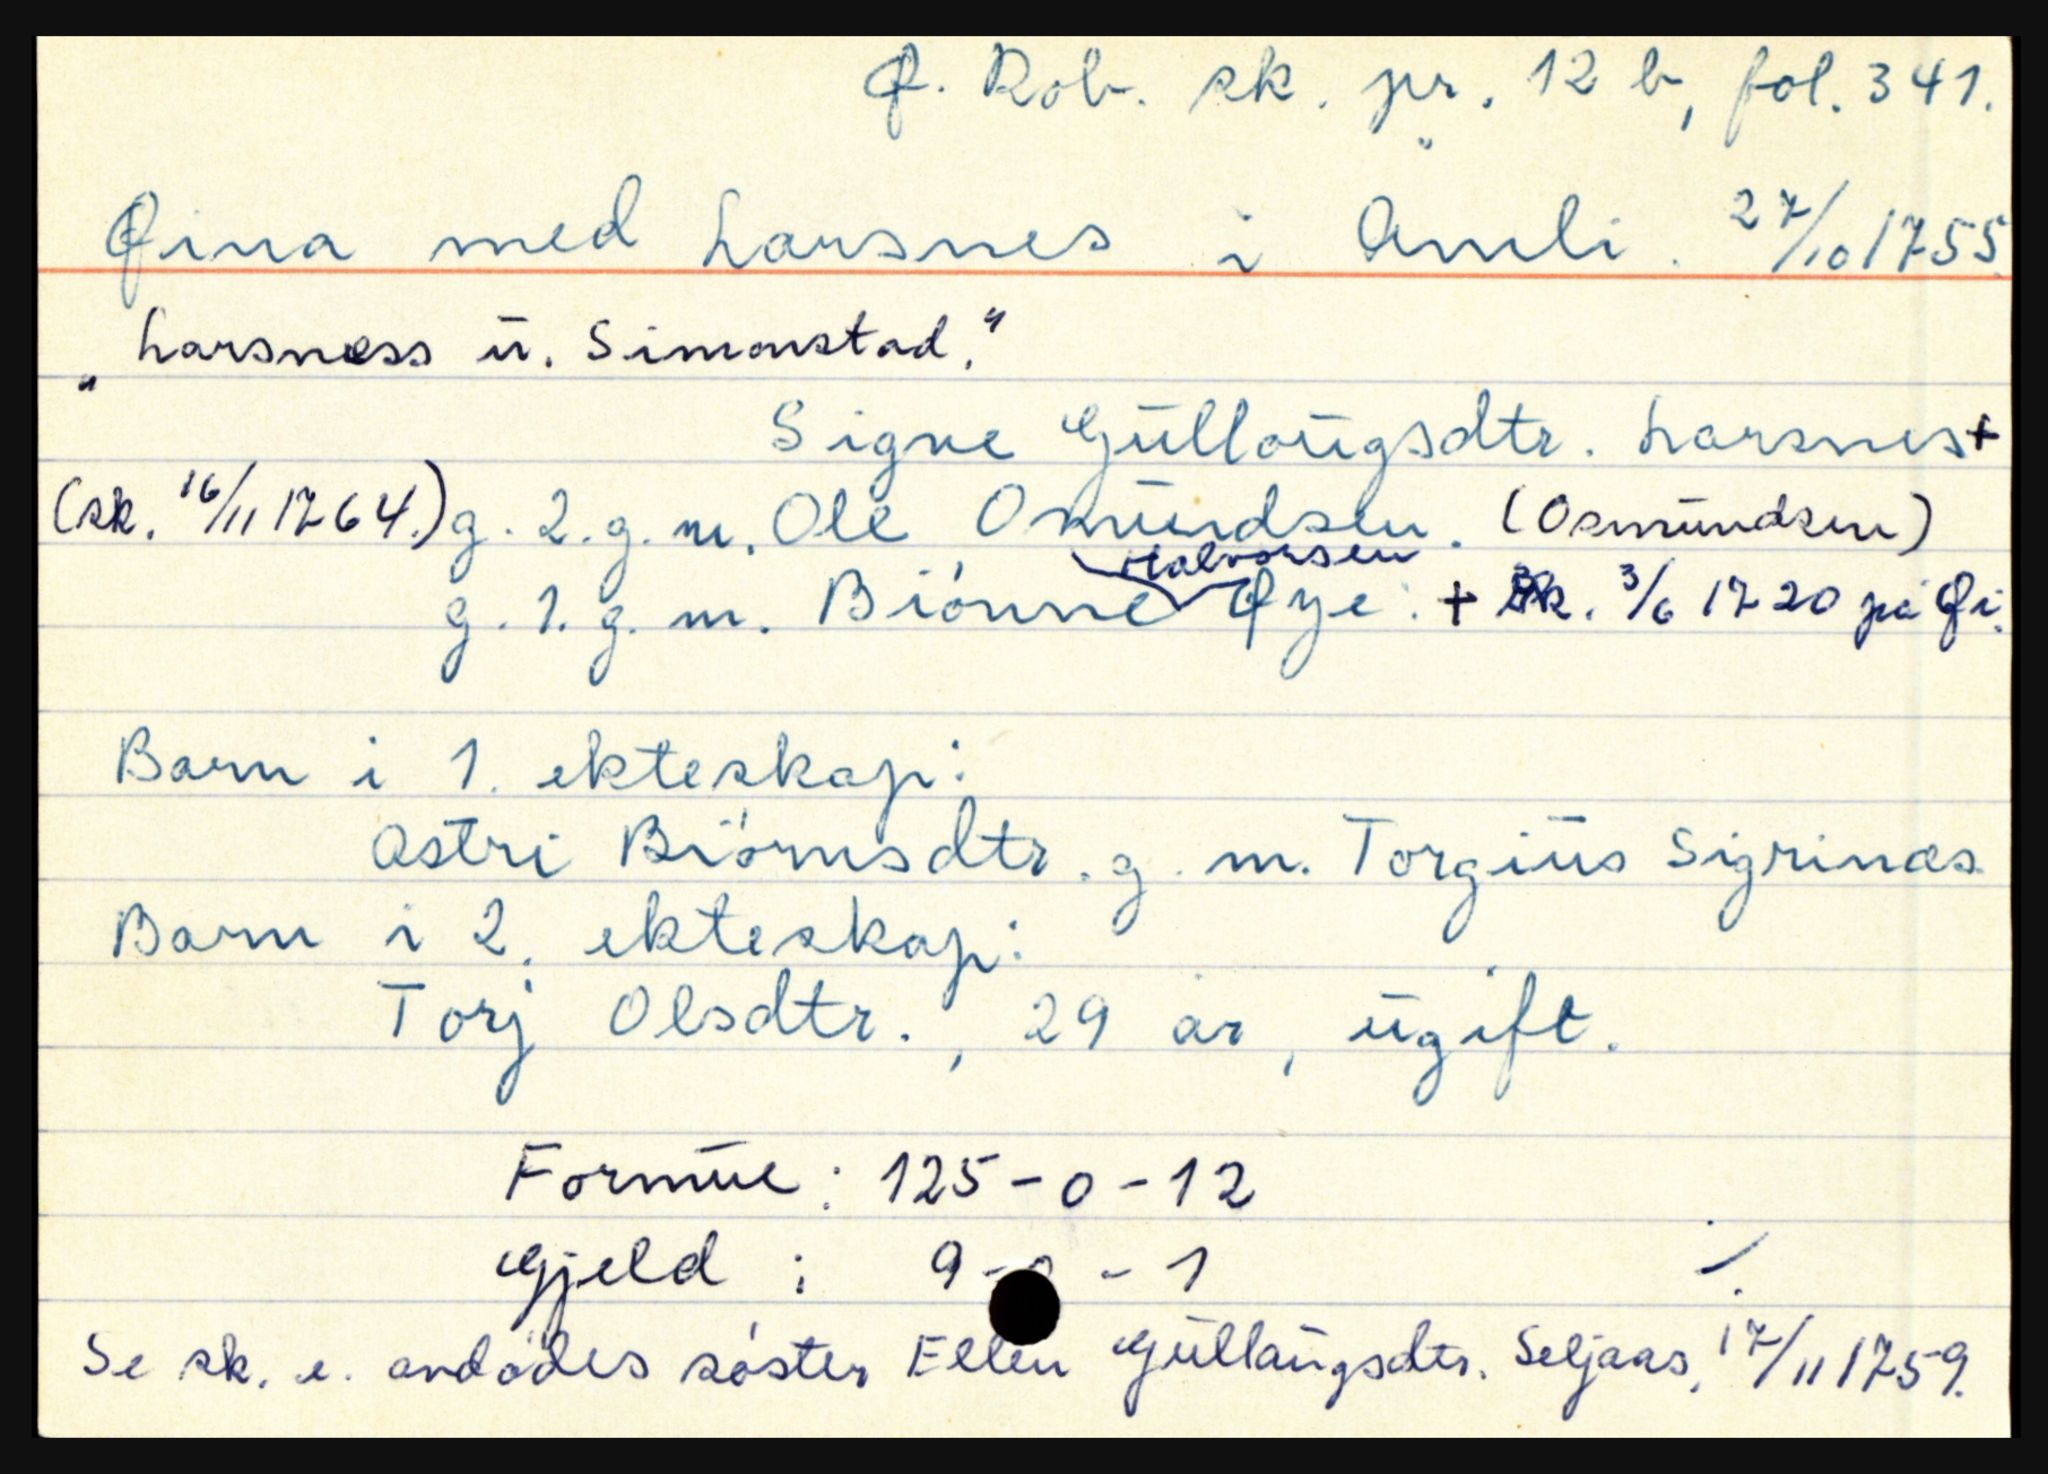 Ø. Rob. sk. pr. 12 b, fol. 341.
Øina med Larsnes i Åmli. 27/10 1755.
"Larsness ü. Simonstad."
Signe Güllaügsdtr. Larsnes +
(sk. 16/11 1764.) g. 2. g. m. Ole Omündsen. (Osmündsen)
Halvorsen
g. 1. g. m. Biónne Øye. + Sk. 3/6 1720 på Øi.
Barn i 1. ekteskap:
Astri Biórnsdtr. g. m. Torgiüs Sigrinæs
Barn i 2. ekteskap:
Torj Olsdtr., 29 år, ügift.
Formüe: 125-0-12
Gjeld: 9-0-1
Se sk. e. avdødes søster Ellen Güllaügsdtr. Seljaas, 17/11 1759.